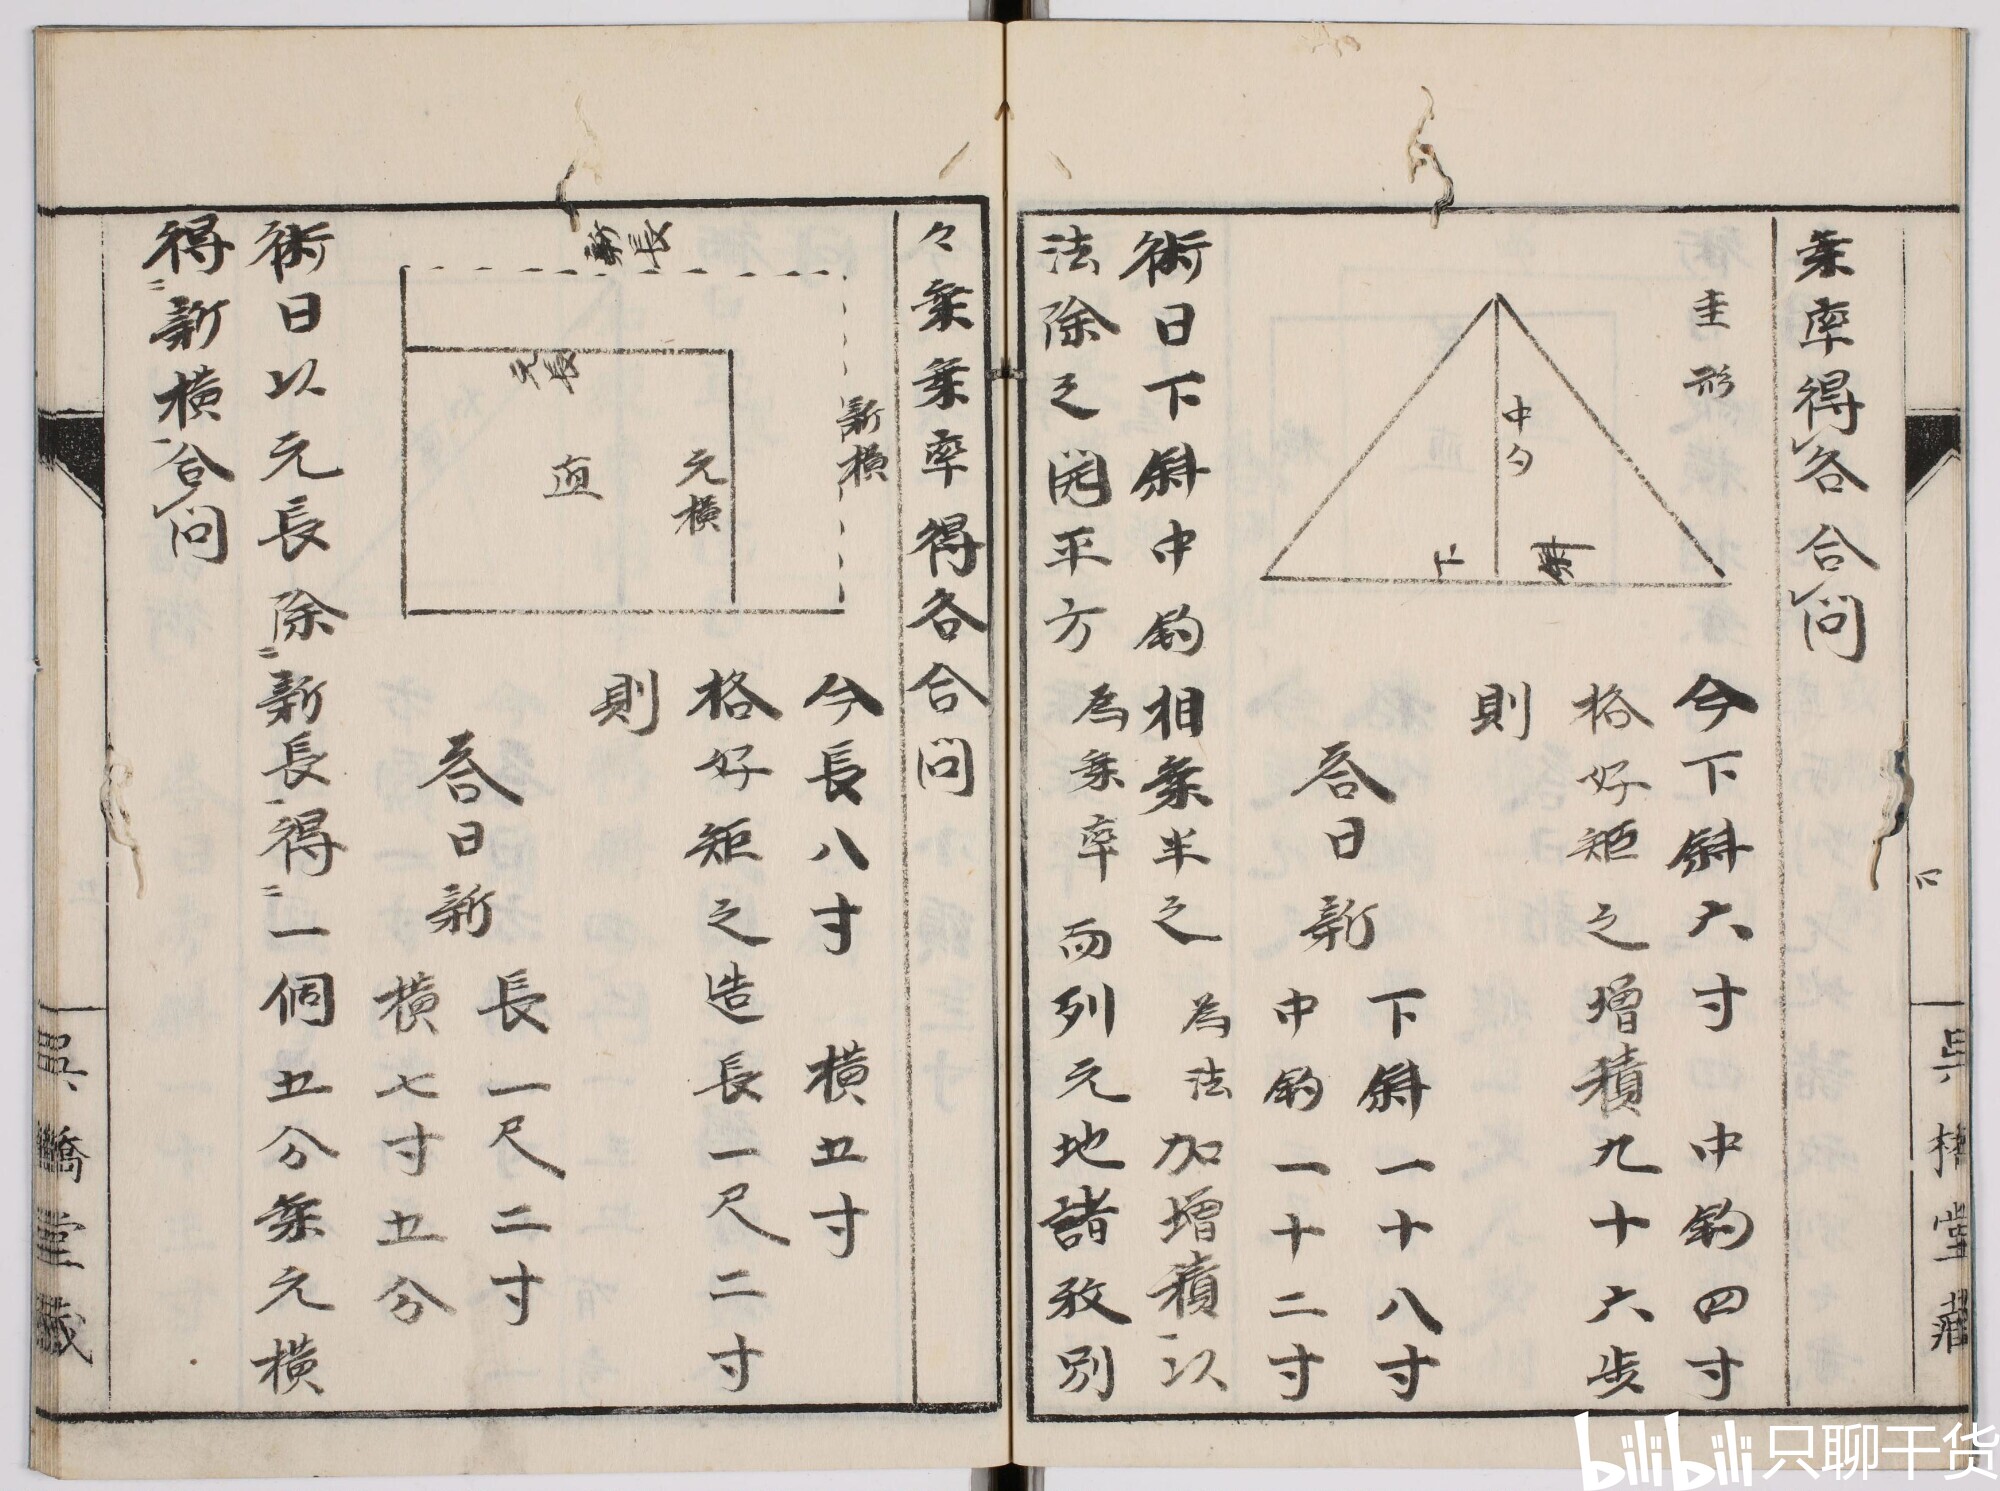 乗率得各合問
圭形
中勾
下斜
今下斜六寸 中鈎四寸
格好矩之増積九十六歩
則
答曰新
下斜一十八寸
中鈎一十二寸
術曰下斜中鈎相乗半之為法加増積以
法除之開平方為乗率而列元地諸数別
々乗乗率得各合問
新長
元長
直
元横
新横
今長八寸 横五寸
格好矩之造長一尺二寸
則
答曰新
長一尺二寸
横七寸五分
術曰以元長除新長得一個五分乗元横
得新横合問
呉橋堂蔵
bilibili 只聊干货